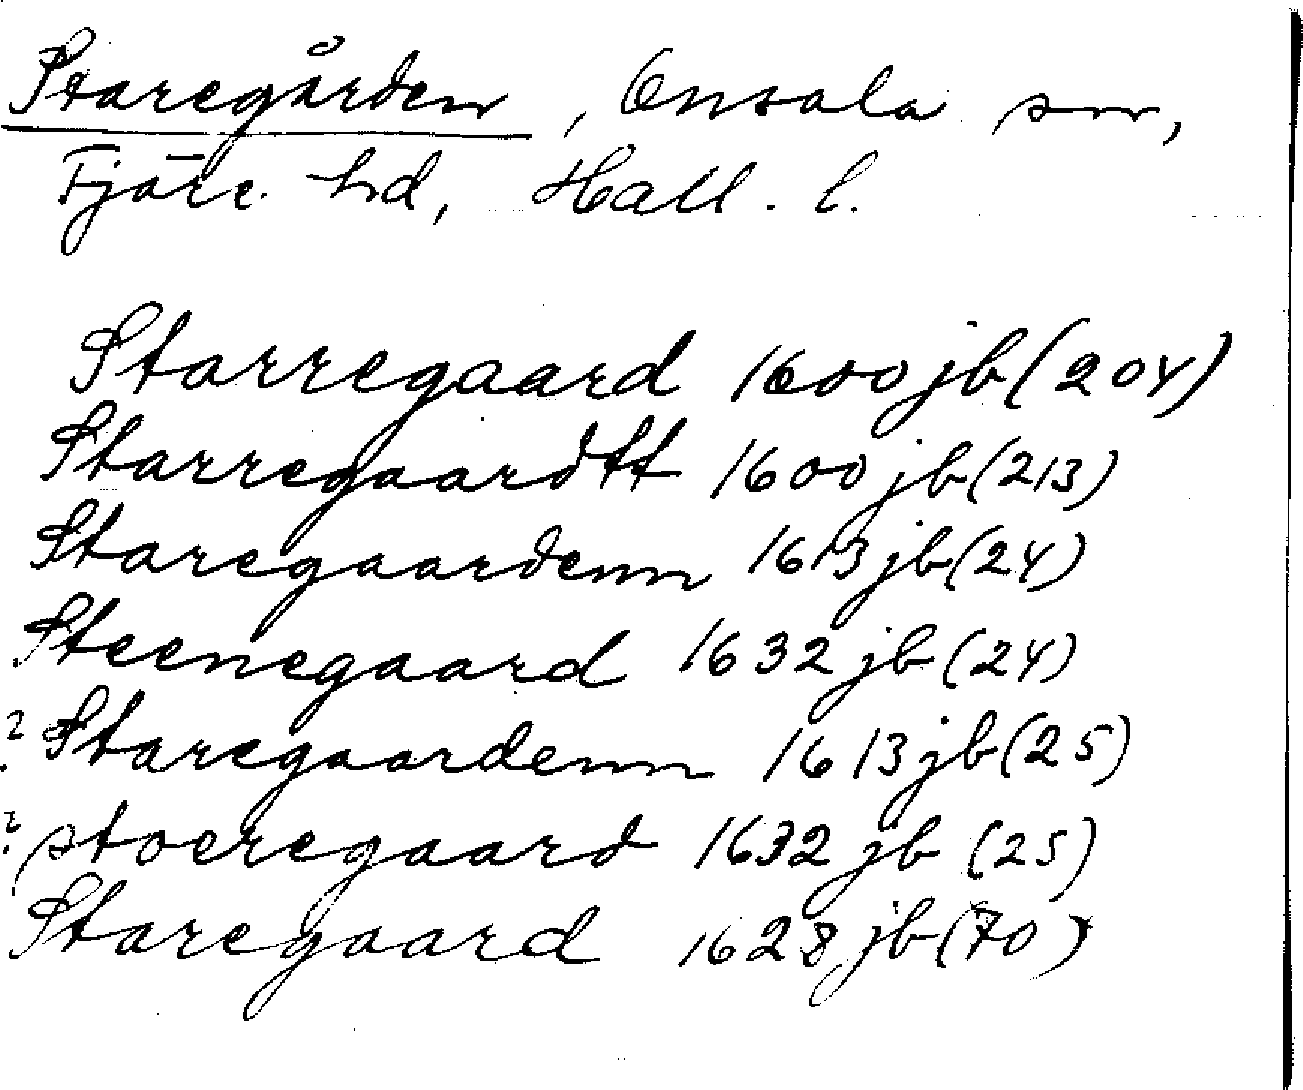 Staregården, Onsala sn,
Fjäre hd, Hall. l.
Starregaard 1600 jb (204)
Starregaardtt 1600 jb (213)
Staregaardenn 1613 jb (24)
Steenegaard 1632 jb (24)
? Staregaardenn 1613 jb (25)
? stoeregaard 1632 jb (25)
Staregaard 1628 jb (70)